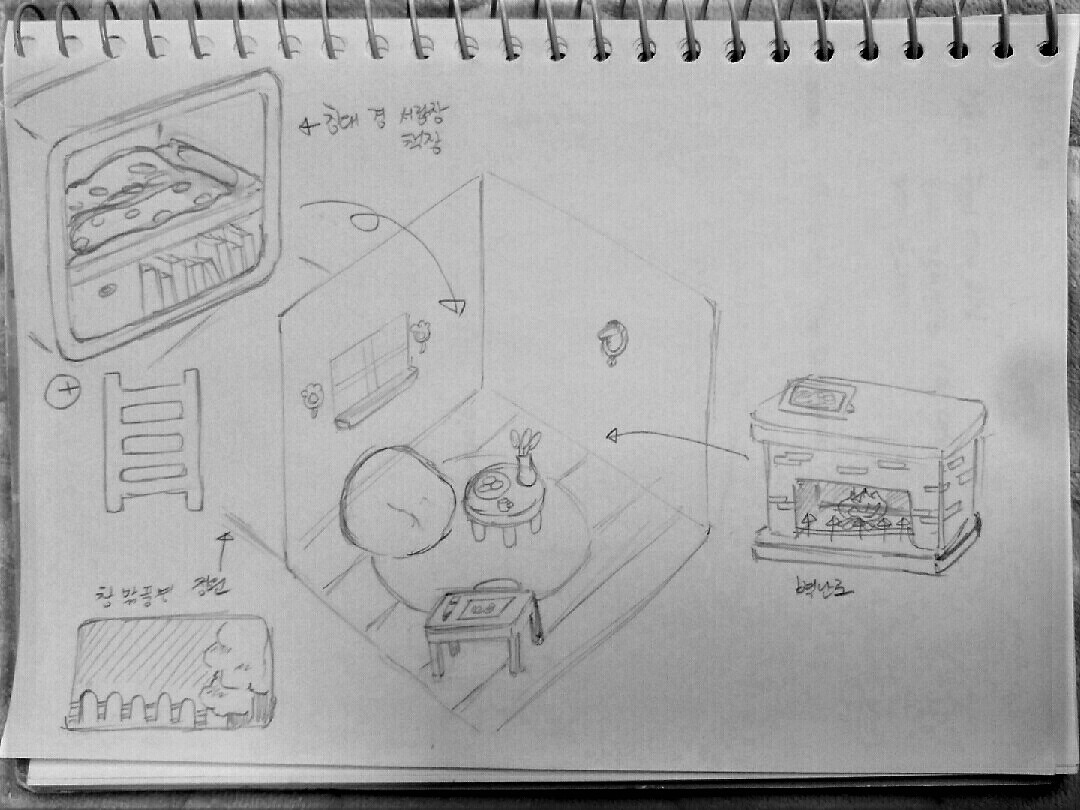 ← 침대 겸 서랍장
책장
창 밖풍경
정원
벽난로